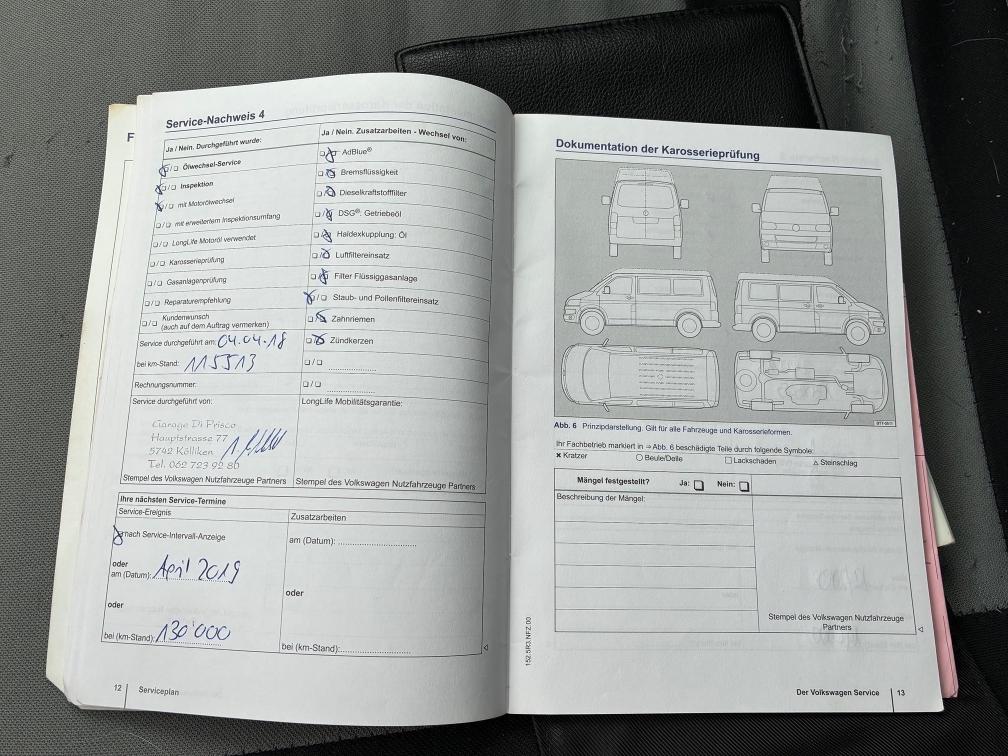 F
Service-Nachweis 4
Ja / Nein. Durchgeführt wurde:
Ja / Nein. Zusatzarbeiten - Wechsel von:
Ölwechsel-Service
Inspektion
mit Motorölwechsel
mit erweitertem Inspektionsumfang
LongLife Motoröl verwendet
Karosserieprüfung
Gasanlagenprüfung
Reparaturempfehlung
Kundenwunsch
(auch auf dem Auftrag vermerken)
Service durchgeführt am: 04.04.18
bei km-Stand: 115513
Rechnungsnummer:
AdBlue®
Bremsflüssigkeit
Dieselkraftstofffilter
DSG®: Getriebeöl
Haldexkupplung: Öl
Luftfiltereinsatz
Filter Flüssiggasanlage
Staub- und Pollenfiltereinsatz
Zahnriemen
Zündkerzen
Service durchgeführt von:
Garage Di Prisco
Hauptstrasse 77
5742 Kölliken
Tel. 062 723 92 80
Stempel des Volkswagen Nutzfahrzeuge Partners
LongLife Mobilitätsgarantie:
Stempel des Volkswagen Nutzfahrzeuge Partners
Ihre nächsten Service-Termine
Service-Ereignis
nach Service-Intervall-Anzeige
oder
am (Datum): April 2019
oder
bei (km-Stand): 130'000
Zusatzarbeiten
am (Datum):
oder
bei (km-Stand):
12 Serviceplan
Dokumentation der Karosserieprüfung
Abb. 6 Prinzipdarstellung. Gilt für alle Fahrzeuge und Karosserieformen.
Ihr Fachbetrieb markiert in ⇒ Abb. 6 beschädigte Teile durch folgende Symbole:
× Kratzer ○ Beule/Delle □ Lackschaden △ Steinschlag
Mängel festgestellt? Ja: Nein:
Beschreibung der Mängel:
Stempel des Volkswagen Nutzfahrzeuge
Partners
152.5R3.NFZ.00
Der Volkswagen Service 13